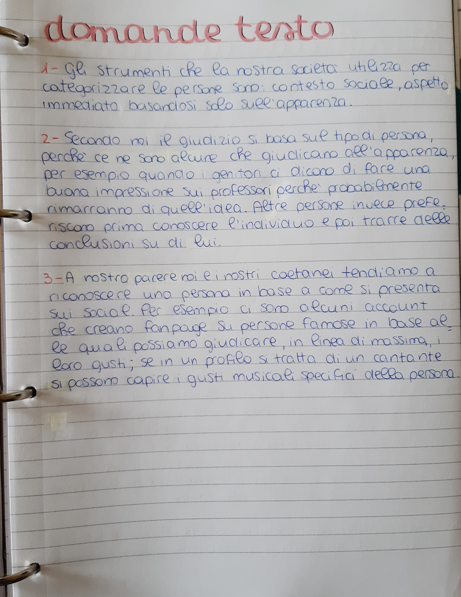 domande testo
1- Gli strumenti che la nostra società utilizza per
categorizzare le persone sono: contesto sociale, aspetto
immediato basandosi solo sull'apparenza.
2- Secondo noi il giudizio si basa sul tipo di persona,
perché ce ne sono alcune che giudicano all'apparenza,
per esempio quando i genitori ci dicono di fare una
buona impressione sui professori perché probabilmente
rimarranno di quell'idea. Altre persone invece prefe-
riscono prima conoscere l'individuo e poi trarre delle
conclusioni su di lui.
3- A nostro parere noi e i nostri coetanei tendiamo a
riconoscere una persona in base a come si presenta
sui social. Per esempio ci sono alcuni account
che creano fanpage su persone famose in base al-
le quali possiamo giudicare, in linea di massima, i
loro gusti; se in un profilo si tratta di un cantante
si possono capire i gusti musicali specifici della persona